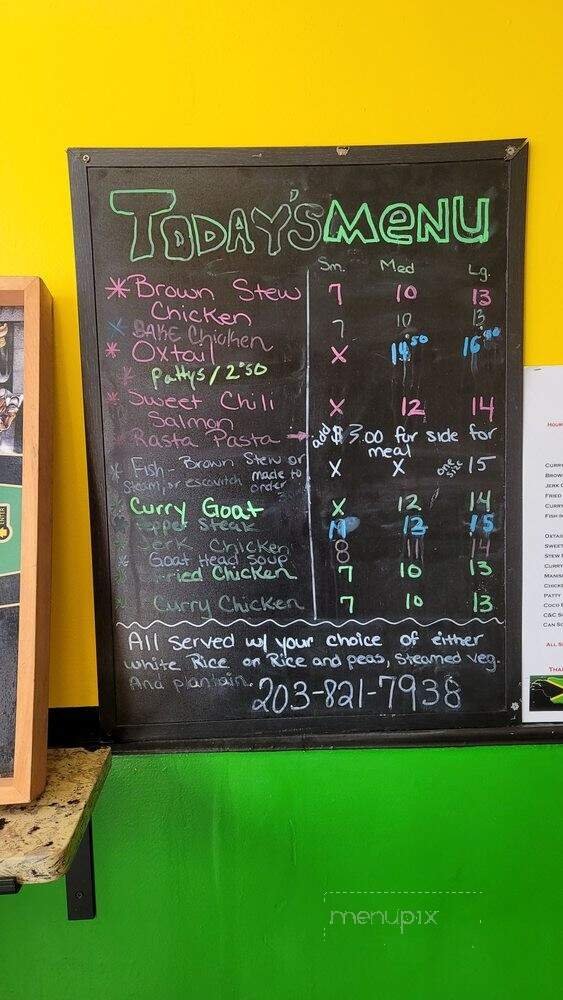 TODAY'S MENU
Sm. Med Lg.
* Brown Stew Chicken 7 10 13
* BAKE Chicken 7 10 13
* Oxtail X 14.50 16.50
* Pattys / 2.50
* Sweet Chili Salmon X 12 14
* Rasta Pasta → add $3.00 for side for meal
* Fish - Brown Stew or Steam, or escavitch made to order X X one size 15
Curry Goat X 12 14
Pepper Steak 12 15
Jerk Chicken 8 11 14
Goat Head Soup
Fried Chicken 7 10 13
Curry Chicken 7 10 13
All served w/ your choice of either
white Rice or Rice and peas, Steamed veg.
And plantain. 203-821-7938
menupix